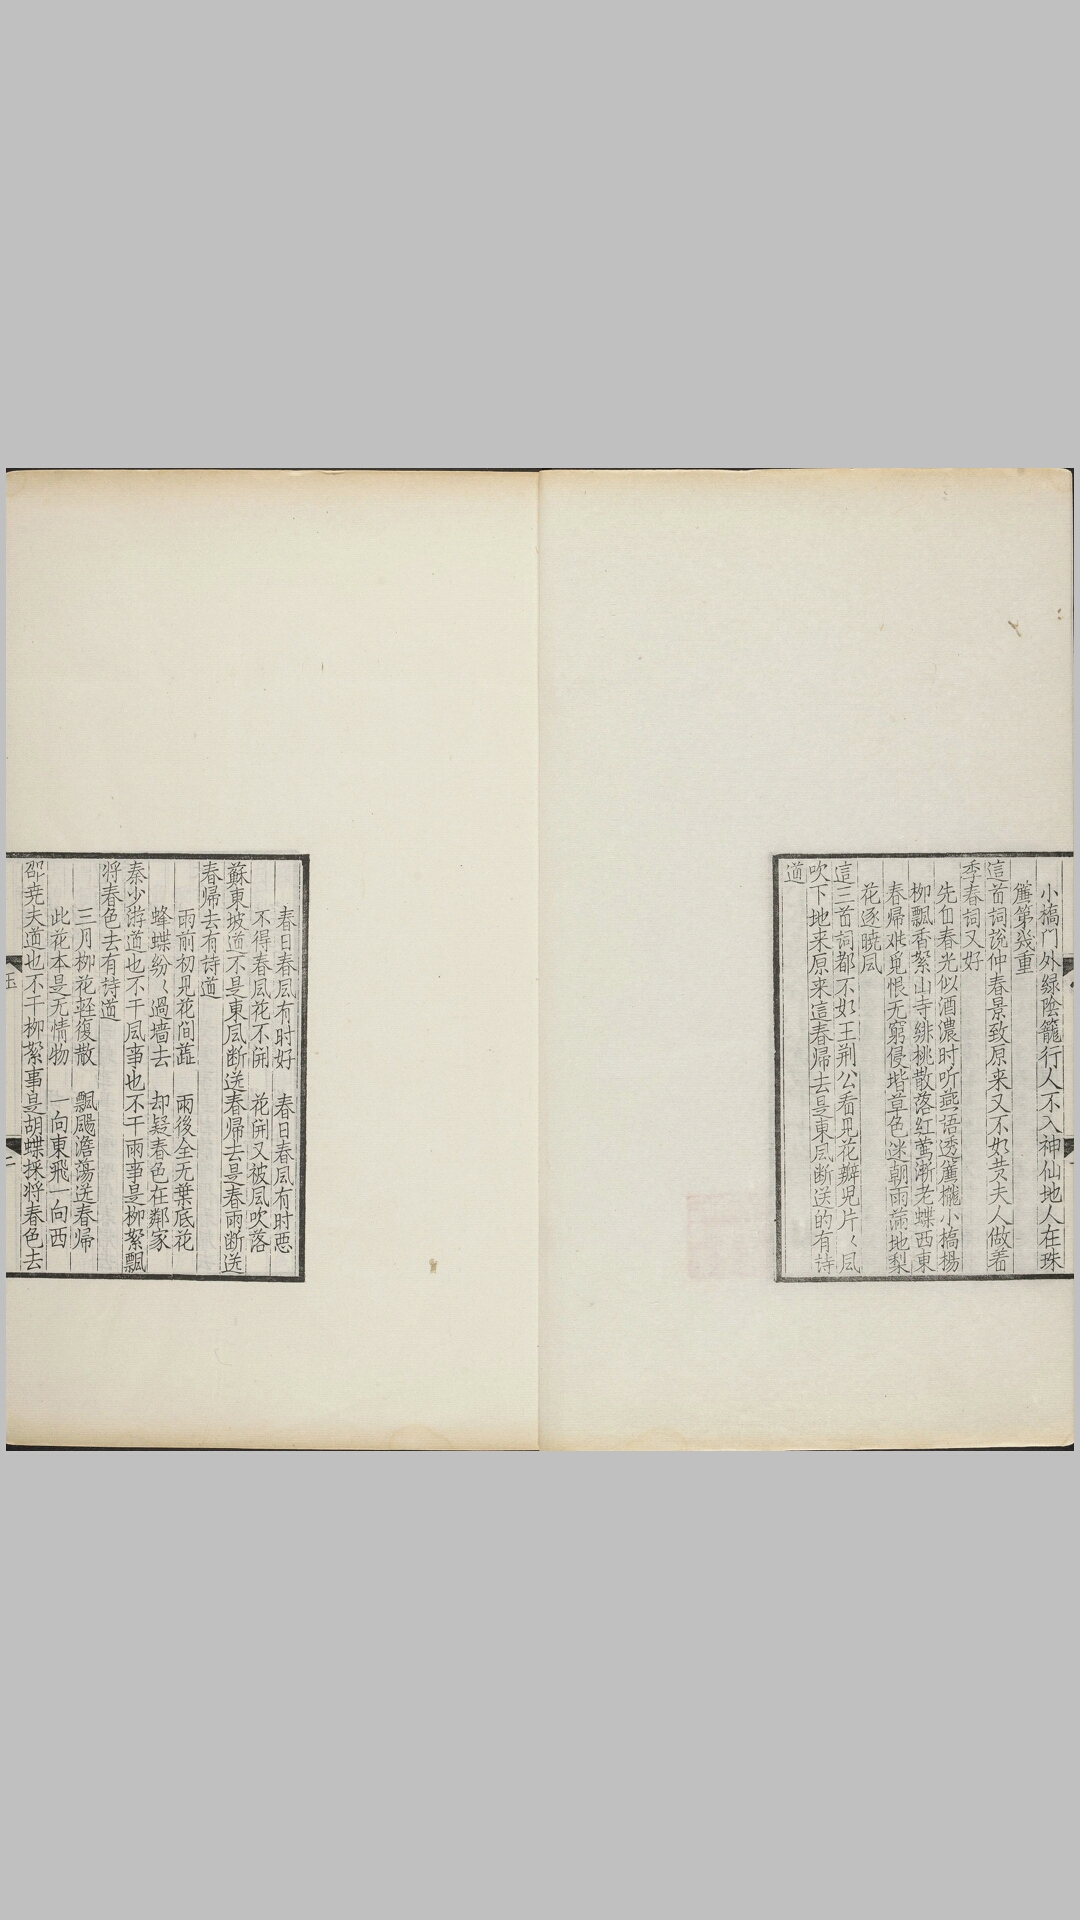 小橋门外緑陰籠行人不入神仙地人在珠
簾第幾重
這首詞説仲春景致原来又不如黄夫人做着
季春詞又好
先自春光似酒濃时听燕语透簾櫳小橋楊
柳飄香絮山寺緋桃散落红鶯渐老蝶西東
春帰难覓恨无窮侵堦草色迷朝雨满地梨
花逐曉凨
這三首詞都不如王荆公看見花瓣児片〻凨
吹下地来原来這春帰去是東凨断送的有詩
道
春日春凨有时好　春日春凨有时悪
不得春凨花不開　花開又被凨吹落
蘇東坡道不是東凨断送春帰去是春雨断送
春帰去有诗道
雨前初見花间蕋　雨後全无葉底花
蜂蝶紛〻過墙去　却疑春色在鄰家
秦少游道也不干凨事也不干雨事是柳絮飄
将春色去有诗道
三月柳花軽復散　飄颺澹蕩送春帰
此花本是无情物　一向東飛一向西
邵尭夫道也不干柳絮事是胡蝶採将春色去
玉
二